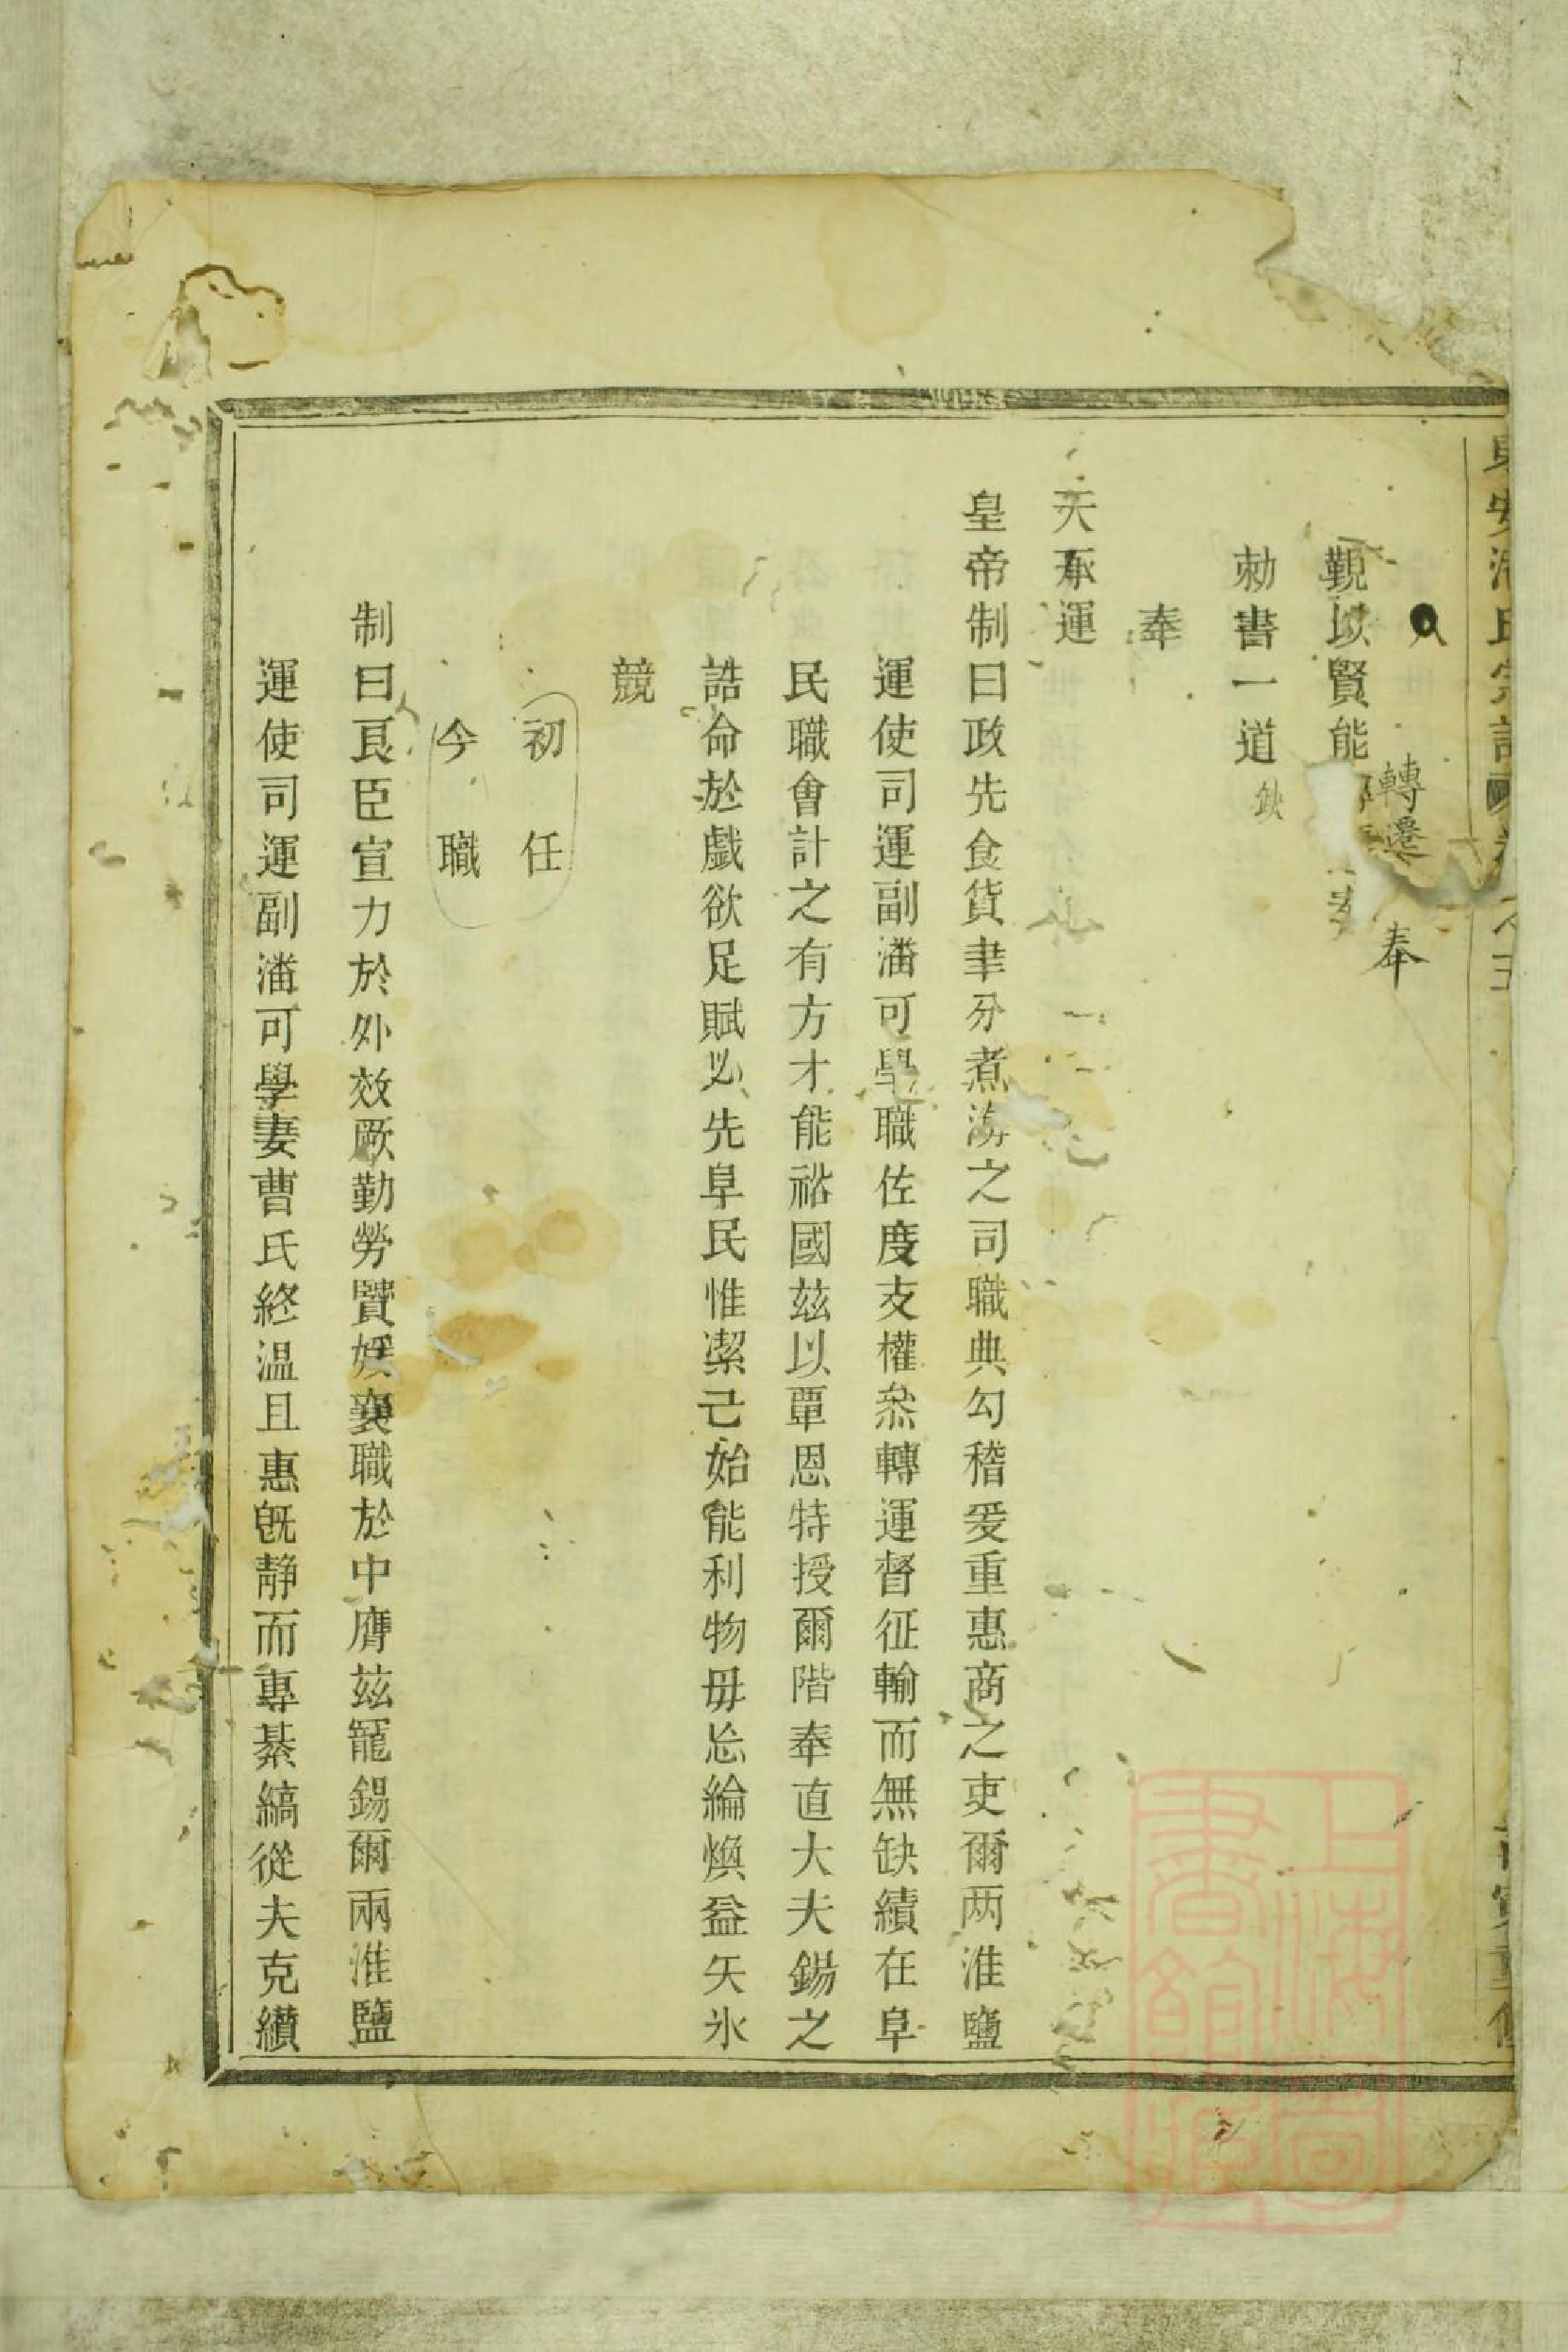 轉遷 奉
覲以賢能
勅書一道
奉
天承運
皇帝制曰政先食貨聿分煮海之司職典勾稽爰重惠商之吏爾两淮鹽
運使司運副潘可學職佐度支權叅轉運督征輸而無缺績在阜
民職會計之有方才能裕國玆以覃恩特授爾階奉直大夫錫之
誥命於戲欲足賦必先阜民惟潔己始能利物毋忘綸煥益矢氷
競
初任
今職
制曰良臣宣力於外效厥勤勞賢媛襄職於中膺玆寵錫爾兩淮鹽
運使司運副潘可學妻曹氏終温且惠旣靜而專綦縞從夫克纘
上海圖書館藏